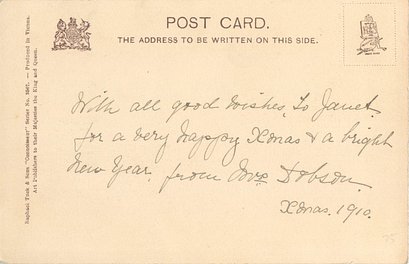 POST CARD.
THE ADDRESS TO BE WRITTEN ON THIS SIDE.
Raphael Tuck & Sons "Connoisseur" Series No. — Produced in Vienna.
Art Publishers to their Majesties the King and Queen.
With all good wishes, to Janet.
for a very happy Xmas & a bright
New Year, from Mrs Dobson.
Xmas. 1910.
75